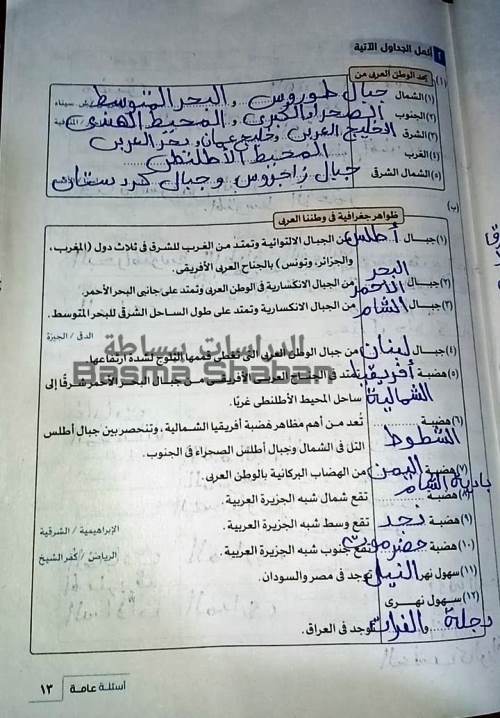 ٢ أكمل الجداول الآتية
(أ) يحد الوطن العربى من
(١) الشمال جبال طوروس و البحر المتوسط
(٢) الجنوب الصحراء الكبرى و المحيط الهندى
(٣) الشرق الخليج العربى وخليج عمان و بحر العرب
(٤) الغرب المحيط الأطلنطى
(٥) الشمال الشرقى جبال زاجروس و جبال كردستان
(ب) ظواهر جغرافية فى وطننا العربى
(١) جبال أطلس من الجبال الالتوائية وتمتد من الغرب للشرق فى ثلاث دول (المغرب،
والجزائر، وتونس) بالجناح العربى الأفريقى.
(٢) جبال البحر الأحمر من الجبال الانكسارية فى الوطن العربى وتمتد على جانبى البحر الأحمر.
(٣) جبال الشام من الجبال الانكسارية وتمتد على طول الساحل الشرقى للبحر المتوسط.
الدقى / الجيزة
الدراسات ببساطة
(٤) جبال لبنان من جبال الوطن العربى التى تغطى قممها الثلوج لشدة ارتفاعها.
Basma Shaban
(٥) هضبة أفريقيا الشمالية تمتد فى الجناح العربى الأفريقى من جبال البحر الأحمر شرقًا إلى
ساحل المحيط الأطلنطى غربًا.
(٦) هضبة الشطوط تُعد من أهم مظاهر هضبة أفريقيا الشمالية، وتنحصر بين جبال أطلس
التل فى الشمال وجبال أطلس الصحراء فى الجنوب.
(٧) هضبة اليمن من الهضاب البركانية بالوطن العربى.
(٨) هضبة بادية الشام تقع شمال شبه الجزيرة العربية.
(٩) هضبة نجد تقع وسط شبه الجزيرة العربية.
الإبراهيمية / الشرقية
(١٠) هضبة حضرموت تقع جنوب شبه الجزيرة العربية.
الرياض / كفر الشيخ
(١١) سهول نهر النيل توجد فى مصر والسودان.
(١٢) سهول نهرى
دجلة والفرات توجد فى العراق.
أسئلة عامة ١٣